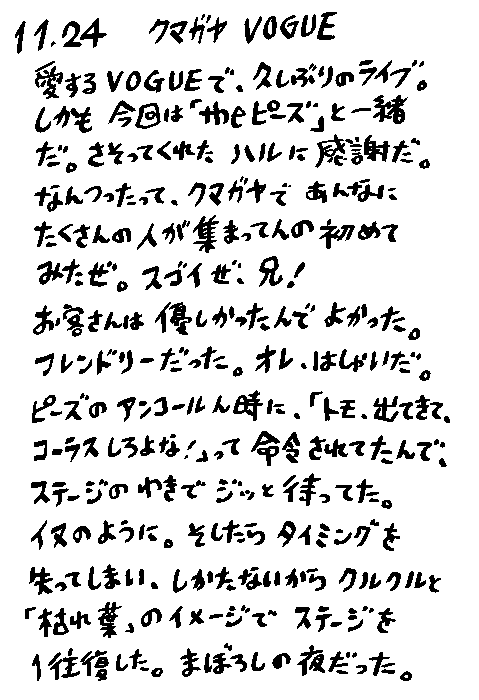 11.24　クマガヤ VOGUE
愛するVOGUEで、久しぶりのライブ。
しかも 今回は「theピーズ」と一緒
だ。さそってくれた ハルに 感謝だ。
なんつったって、クマガヤで あんなに
たくさんの人が集まってんの初めて
みたぜ。スゴイぜ、兄!
お客さんは 優しかったんで よかった。
フレンドリーだった。オレ、はしゃいだ。
ピーズの アンコールん時に、「トモ、出てきて、
コーラスしろよな!」って 命令されてたんで、
ステージの わきで ジッと 待ってた。
イヌのように。そしたら タイミングを
失ってしまい、しかたないから クルクルと
「枯れ葉」のイメージで ステージを
1往復した。まぼろしの夜だった。